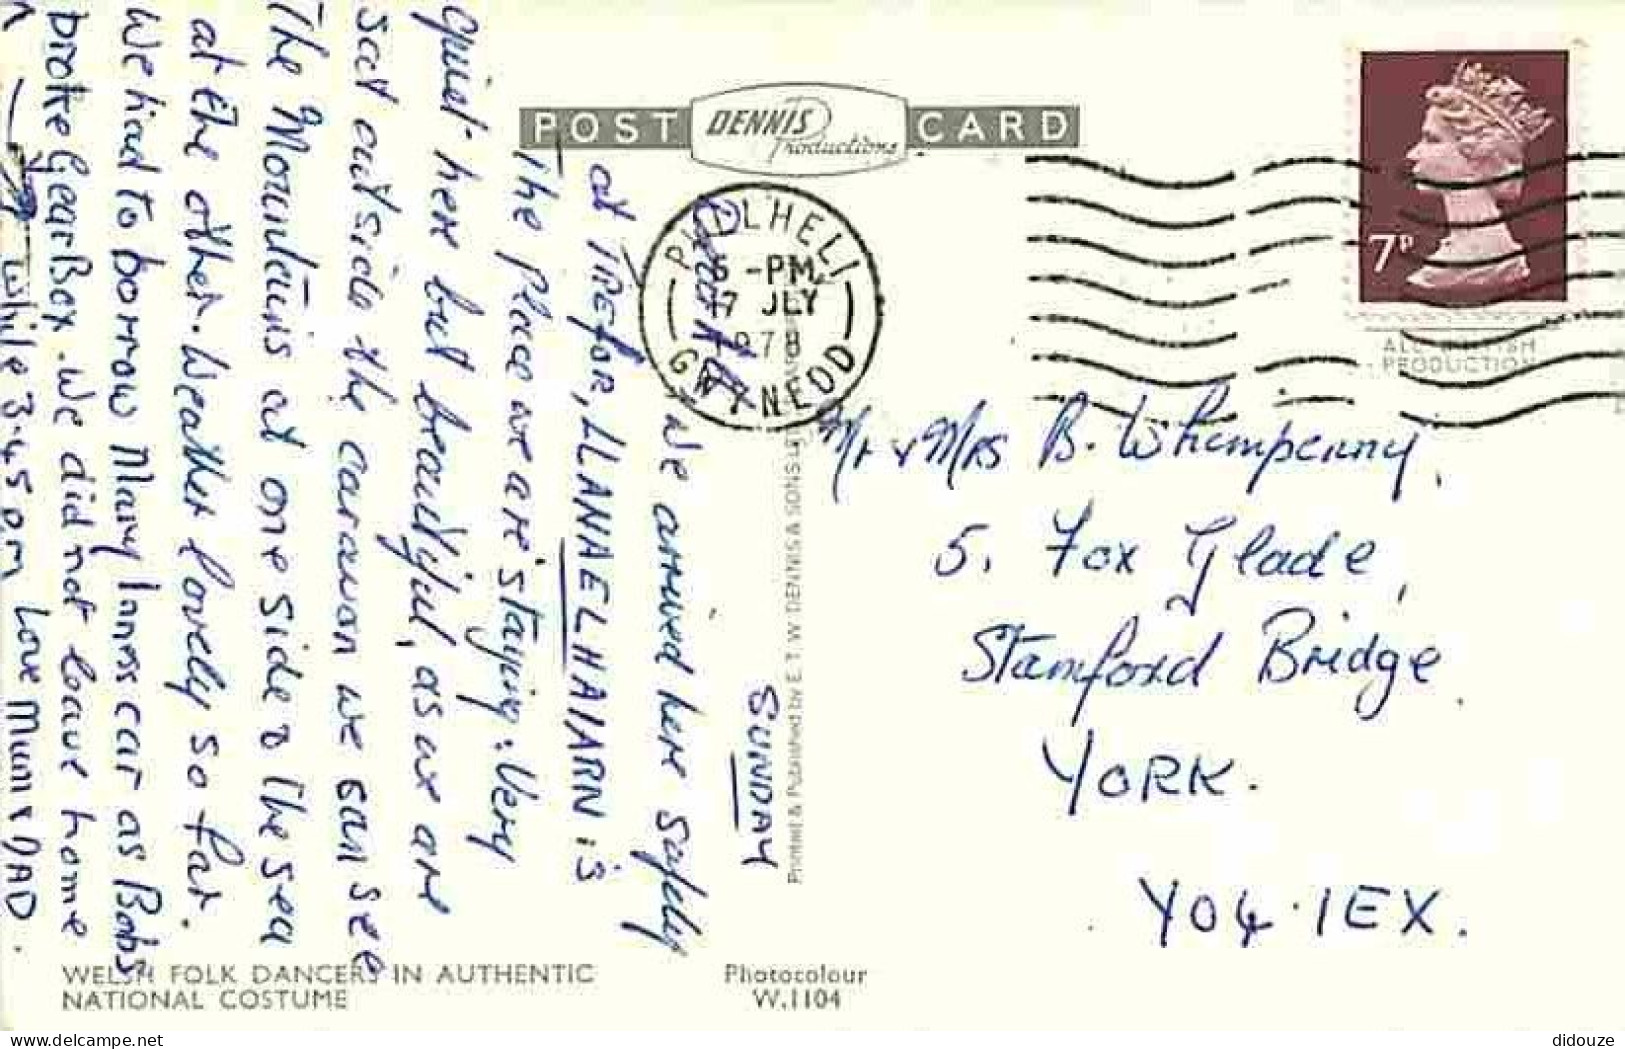 POST DENNIS Productions CARD
PWLLHELI
-PM
7 JLY
1978
GWYNEDD
7P
ALL BRITISH
PRODUCTION
SUNDAY
We arrived here safely
at TREfOR, LLANAELHAIARN is
The place we are staying: Very
quiet here but beautiful, as we are
sat outside the caravan we can see
The Mountains at one side & The sea
at the other. Weather lovely so far.
We had to borrow Mary Inness car as Bobs
broke Gear Box. We did not leave home
while 3.45 pm Love Mum & DAD.
Mr & Mrs B. Whimpenny,
5, Fox Glade,
Stamford Bridge.
YORK.
YO4.1EX.
Printed & Published by E. T. W DENNIS & SONS
WELSH FOLK DANCERS IN AUTHENTIC
NATIONAL COSTUME
Photocolour
W.1104
delcampe.net
didouze